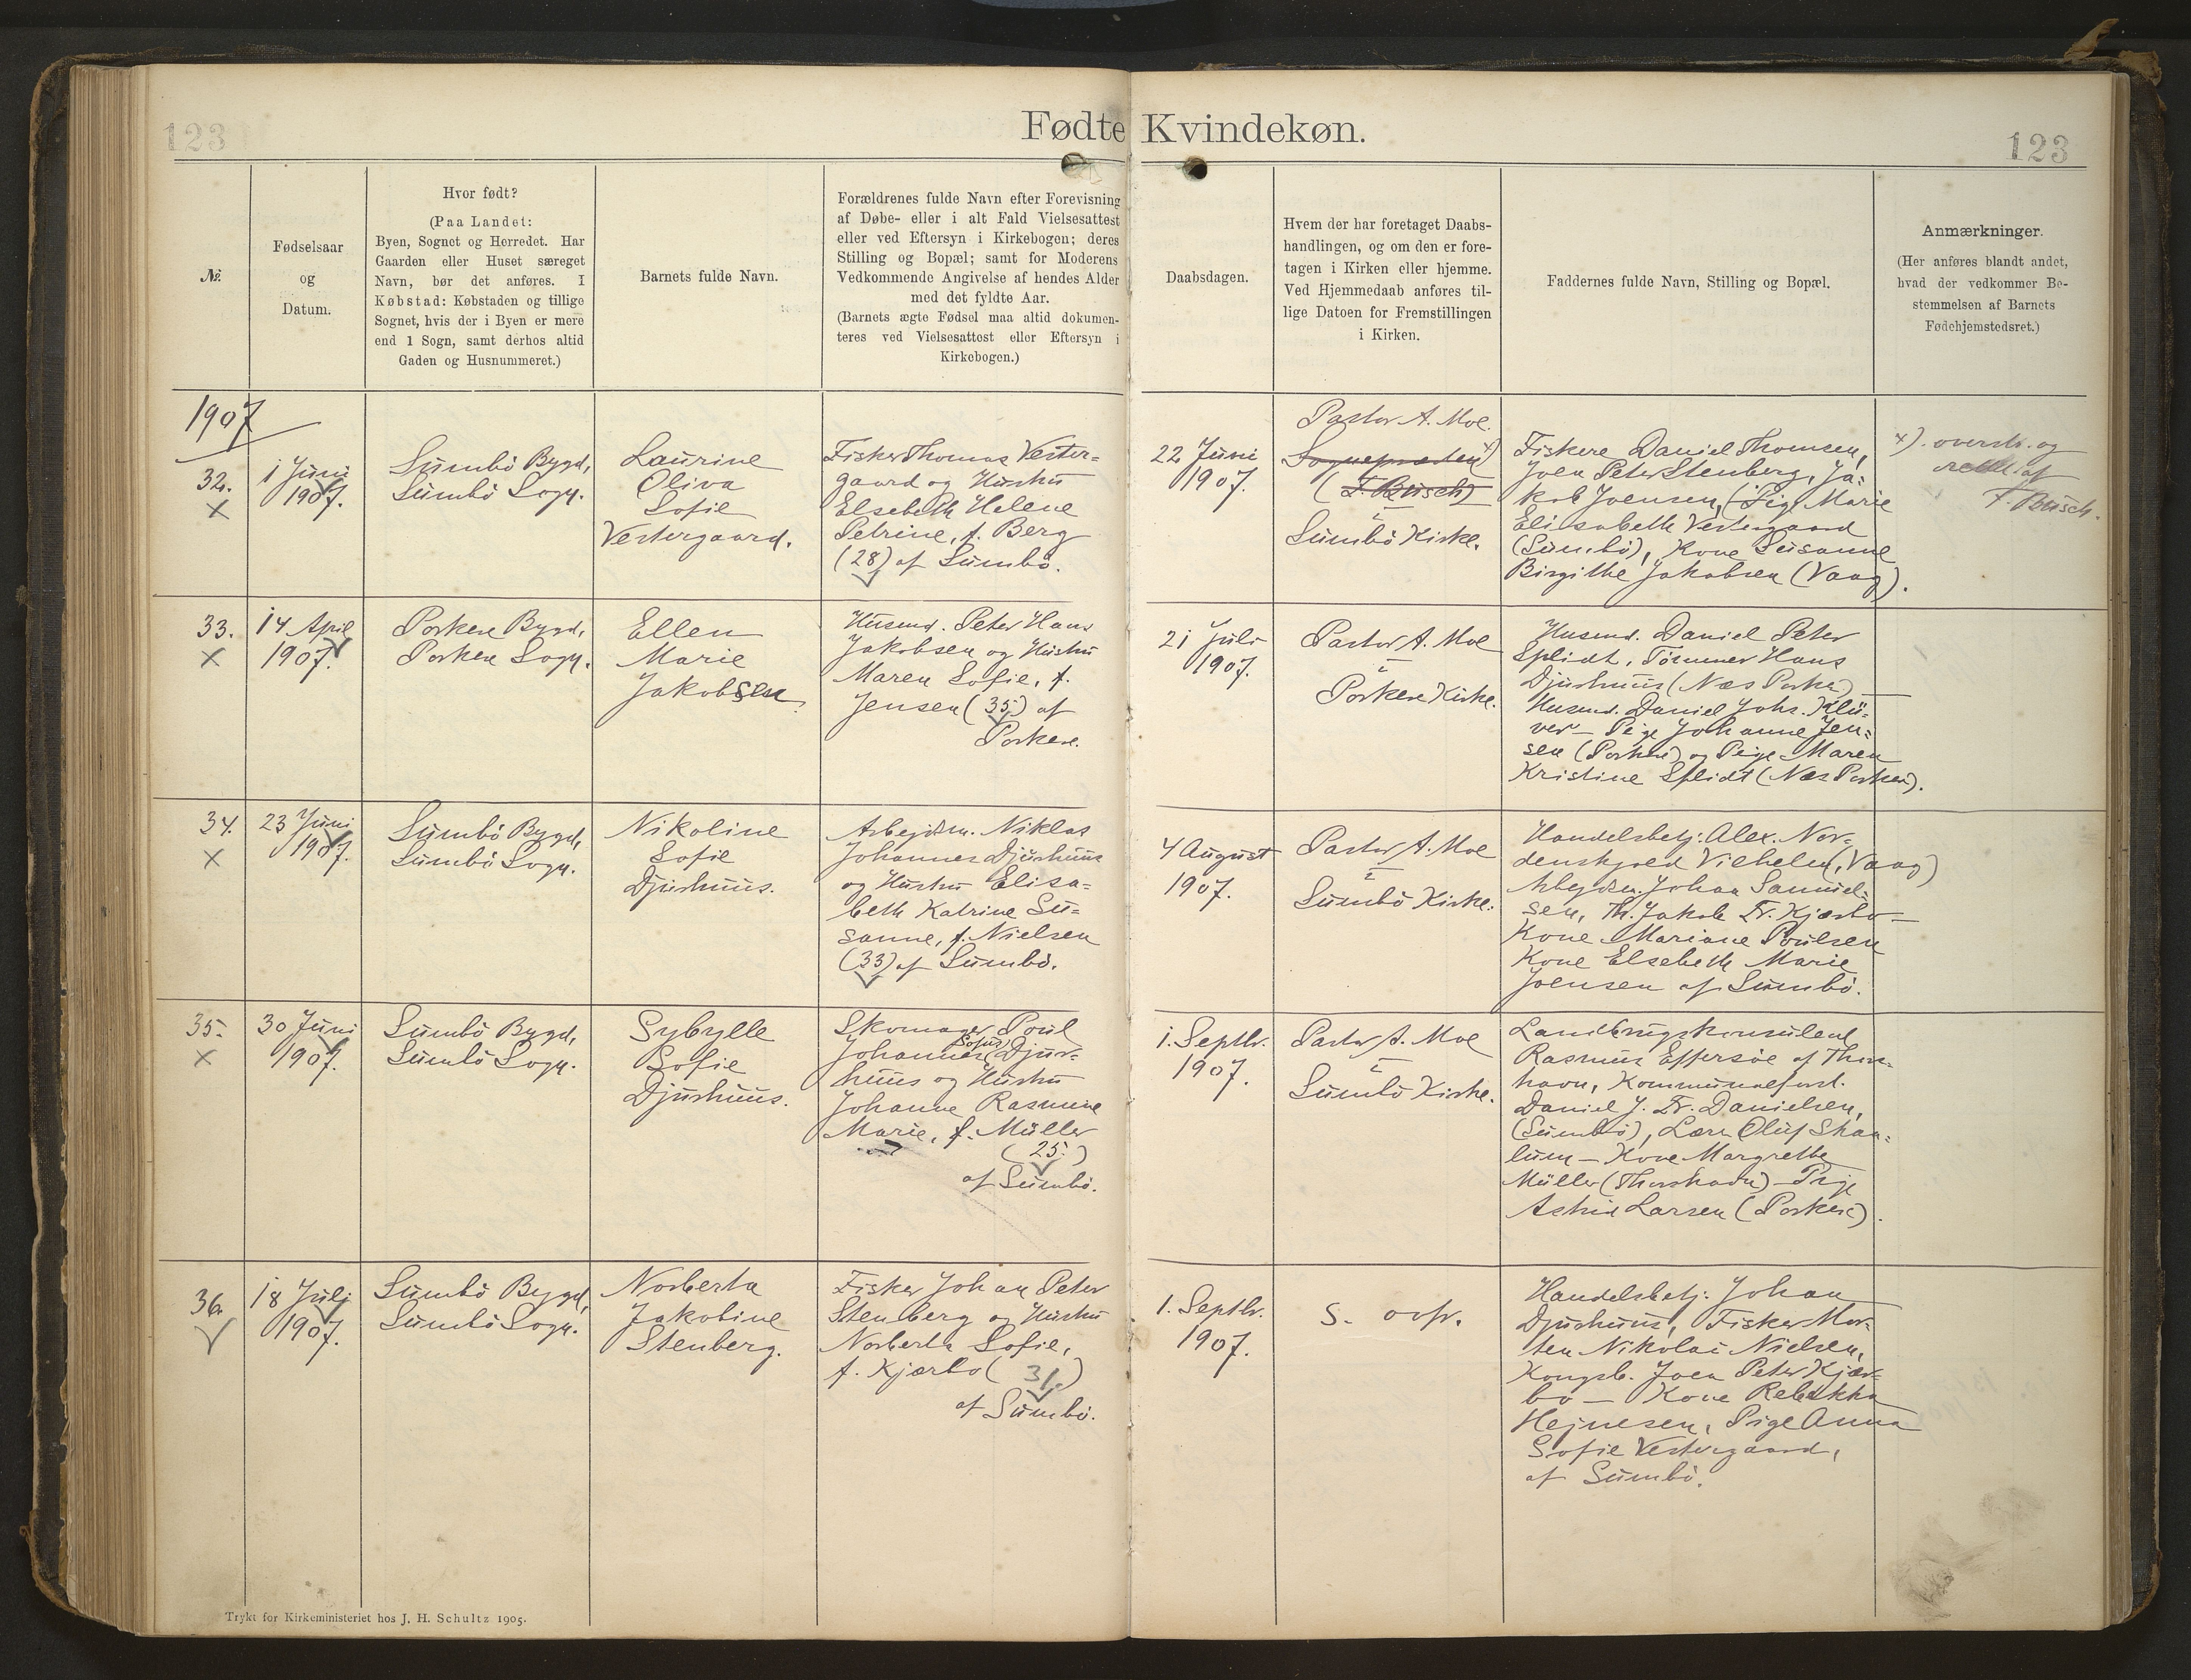 123
Fødte Kvindekøn.
123
№.
Fødselsaar
og
Datum.
Hvor født?
(Paa Landet:
Byen, Sognet og Herredet. Har
Gaarden eller Huset særeget
Navn, bør det anføres. I
Købstad: Købstaden og tillige
Sognet, hvis der i Byen er mere
end 1 Sogn, samt derhos altid
Gaden og Husnummeret.)
Barnets fulde Navn.
Forældrenes fulde Navn efter Forevisning
af Døbe- eller i alt Fald Vielsesattest
eller ved Eftersyn i Kirkebogen; deres
Stilling og Bopæl; samt for Moderens
Vedkommende Angivelse af hendes Alder
med det fyldte Aar.
(Barnets ægte Fødsel maa altid dokumen-
teres ved Vielsesattest eller Eftersyn i
Kirkebogen.)
Daabsdagen.
Hvem der har foretaget Daabs-
handlingen, og om den er fore-
tagen i Kirken eller hjemme.
Ved Hjemmedaab anføres til-
lige Datoen for Fremstillingen
i Kirken.
Faddernes fulde Navn, Stilling og Bopæl.
Anmærkninger.
(Her anføres blandt andet,
hvad der vedkommer Be-
stemmelsen af Barnets
Fødehjemstedsret.)
1907
32.
×
1 Juni
1907.
Sumbö Bygd,
Sumbö Sogn.
Laurine
Oliva
Sofie
Vestergaard.
Fisker Thomas Vester=
gaard og Hustru
Elsebeth Helene
Petrine, f. Berg
(28) af Sumbö.
22 Juni
1907.
Pastor A. Moe.
Sognepræsten ×)
(F. Busch)
i
Sumbö Kirke.
Fiskere Daniel Thomsen,
Joen Peter Stenberg, Ja=
kob Joensen, (Pige Marie
Elisabeth Vestergaard
(Sumbö), Kone Susanne
Birgithe Jakobsen (Vaag).
×). overstr. og
rettet af
F. Busch.
33.
×
14 April
1907.
Porkere Bygd,
Porkere Sogn.
Ellen
Marie
Jakobsen
Husmd. Peter Hans
Jakobsen og Hustru
Maren Sofie, f.
Jensen (35) af
Porkere.
21 Juli
1907.
Pastor A. Moe
i
Porkere Kirke.
Husmd. Daniel Peter
Splidt, Tömmer Hans
Djurhuus (Næs Porkere)
Husmd. Daniel Johs. Klü=
ver – Pige Johanne Jen=
sen (Porkere) og Pige Maren
Kristine Splidt (Næs Porkere).
34.
×
23 Juni
1907.
Sumbö Bygd,
Sumbö Sogn.
Nikoline
Sofie
Djurhuus.
Arbejdsm. Niklas
Johannes Djurhuus
og Hustru Elisa=
beth Katrine Su=
sanne, f. Nielsen
(33) af Sumbö.
4 August
1907.
Pastor A. Moe
i
Sumbö Kirke.
Handelsbetj. Alex. Nor=
denskjold Vilhelm, (Vaag)
Arbejdsm. Johan Samuel=
sen, Th. Jakob Fr. Kjærbo –
Kone Mariane Poulsen
Kone Elsebeth Marie
Joensen af Sumbö.
35.
×
30 Juni
1907.
Sumbö Bygd,
Sumbö Sogn.
Sybylle
Sofie
Djurhuus.
Skomager Poul
Sofus
Johannes Djur=
huus og Hustru
Johanne Rasmine
Marie, f. Müller
(25.)
af Sumbö.
1. Septbr.
1907.
Pastor A. Moe
i
Sumbö Kirke.
Landbrugskonsulent
Rasmus Effersøe af Thors=
havn, Kommunalforst.
Daniel J. Fr. Danielsen,
(Sumbö), Lærer Oluf Skaa=
lum – Kone Margrethe
Müller (Thorshavn) – Pige
Astrid Larsen (Porkere).
36.
18 Juli
1907.
Sumbö Bygd,
Sumbö Sogn.
Norberta
Jakobine
Stenberg.
Fisker Johan Peter
Stenberg og Hustru
Norberta Sofie,
f. Kjærbo (31.)
af Sumbö.
1. Septbr.
1907.
S. ovfr.
Handelsbetj. Johan
Djurhuus, Fisker Mor=
ten Nikolai Nielsen,
Kongsb. Joen Peter Kjær=
bo – Kone Rebekka
Hejnesen, Pige Anna
Sofie Vestergaard,
af Sumbö.
Trykt for Kirkeministeriet hos J. H. Schultz 1905.